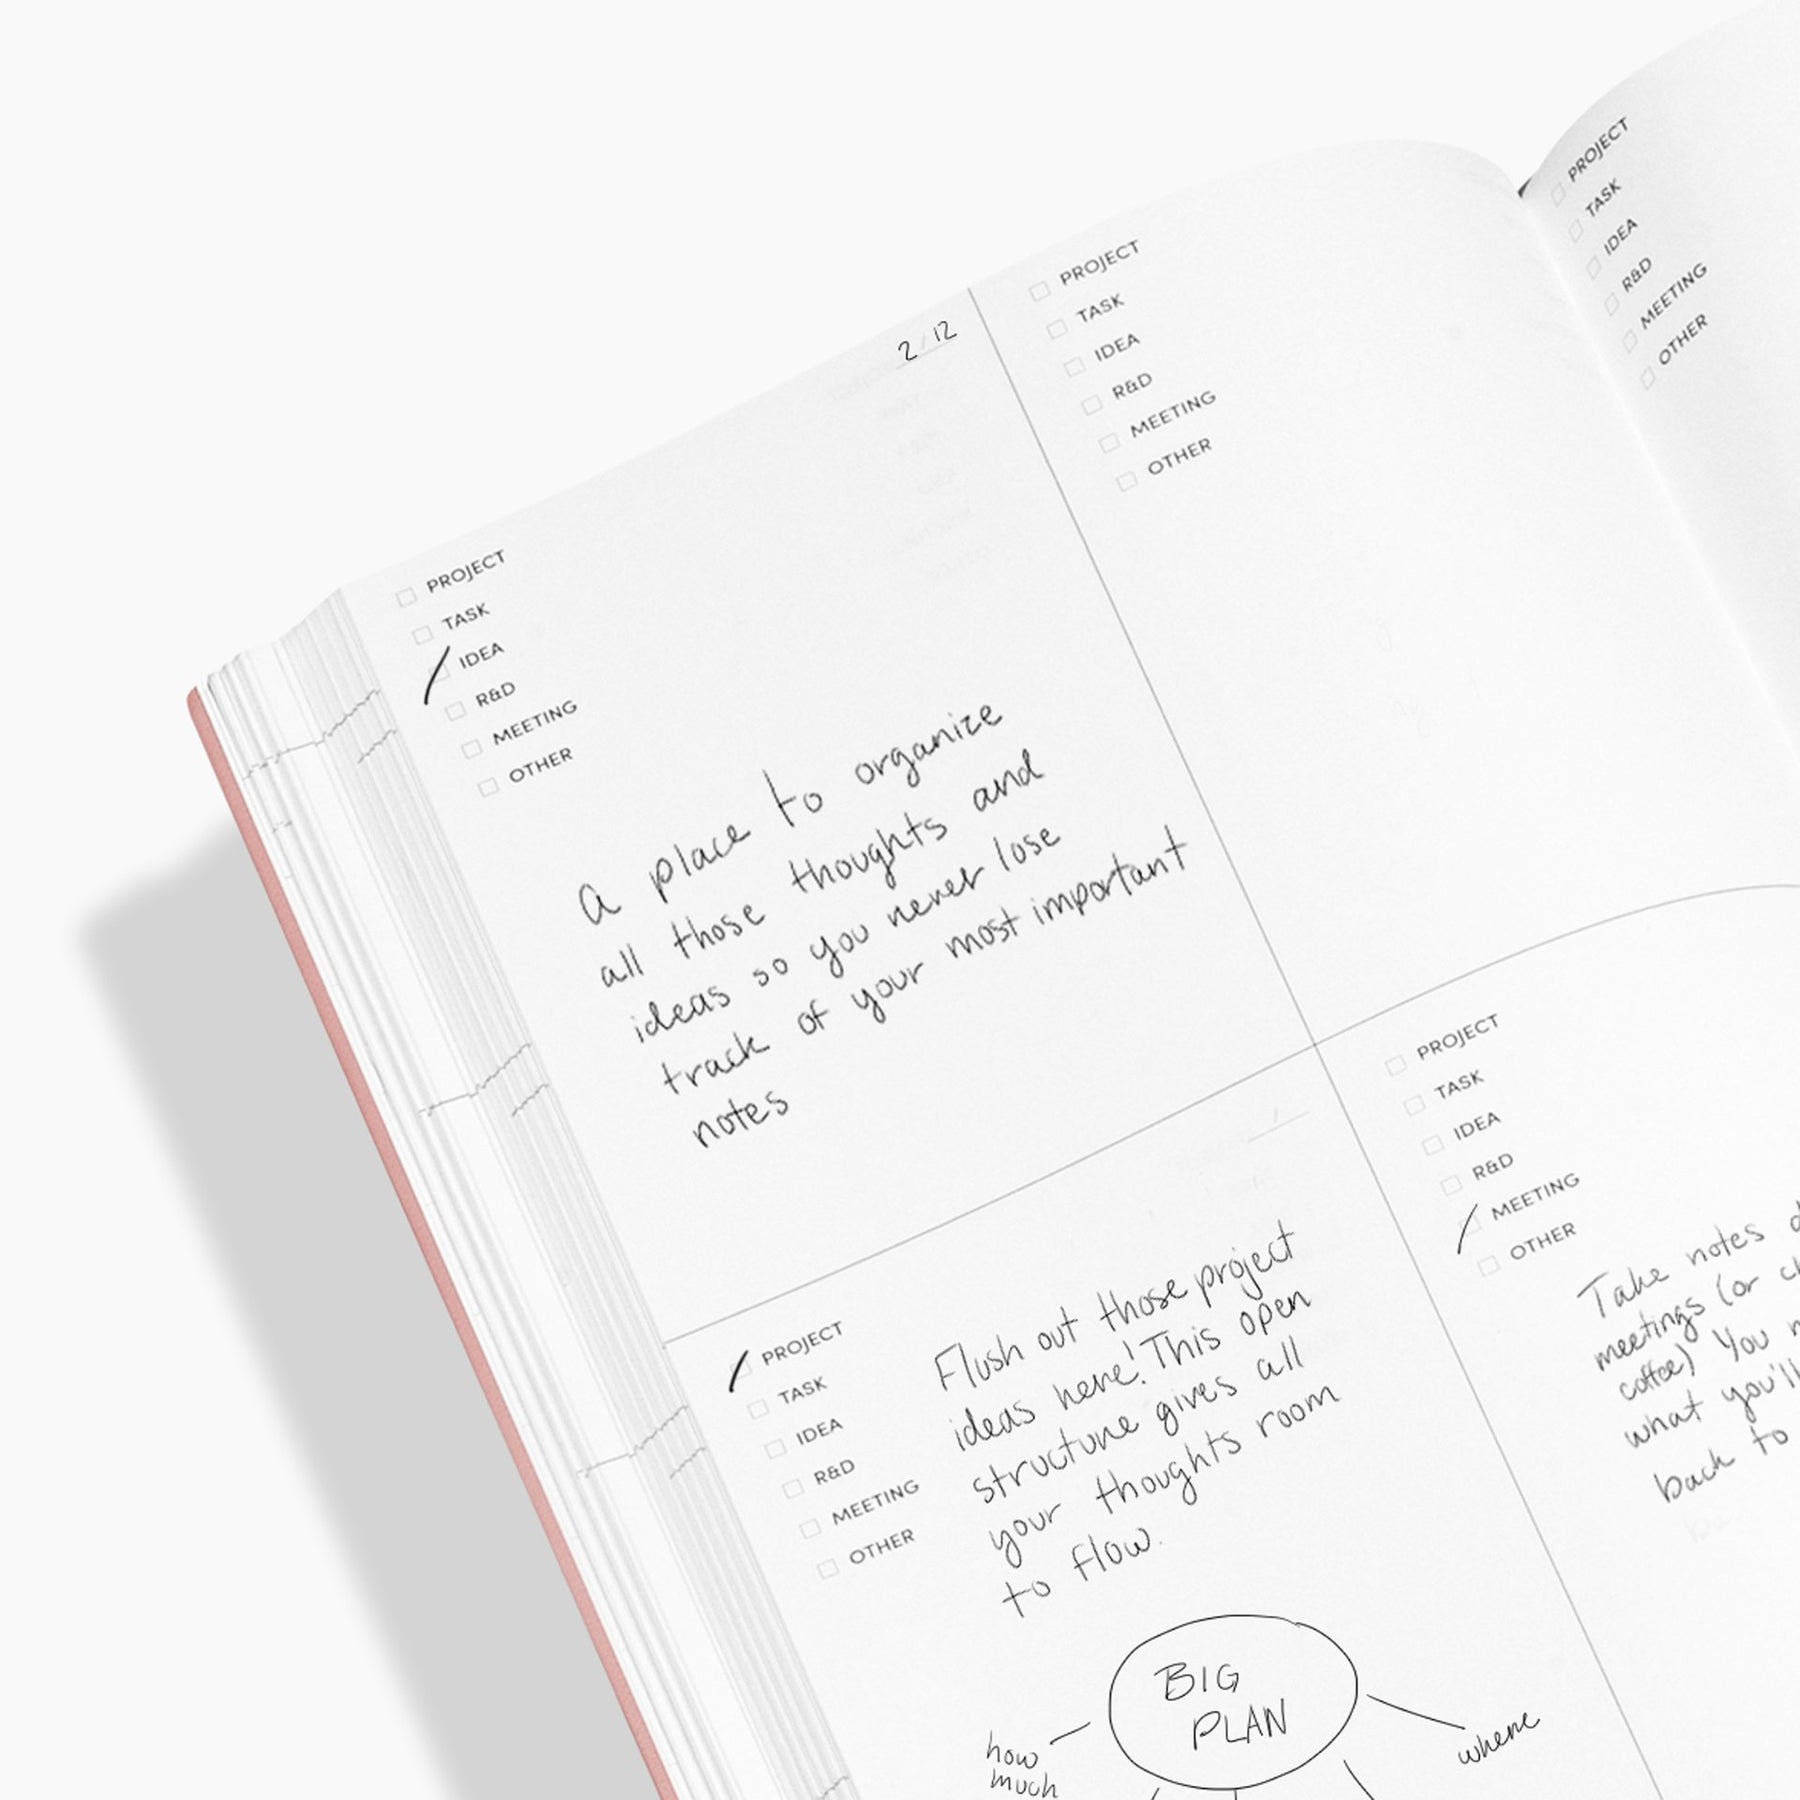 2/12
PROJECT
TASK
IDEA
R&D
MEETING
OTHER
A place to organize
all those thoughts and
ideas so you never lose
track of your most important
notes
PROJECT
TASK
IDEA
R&D
MEETING
OTHER
PROJECT
TASK
IDEA
R&D
MEETING
OTHER
Flush out those project
ideas here! This open
structure gives all
your thoughts room
to flow.
BIG
PLAN
how
much
where
PROJECT
TASK
IDEA
R&D
MEETING
OTHER
Take notes
meetings (or
coffee) You
what you'll
back to
PROJECT
TASK
IDEA
R&D
MEETING
OTHER